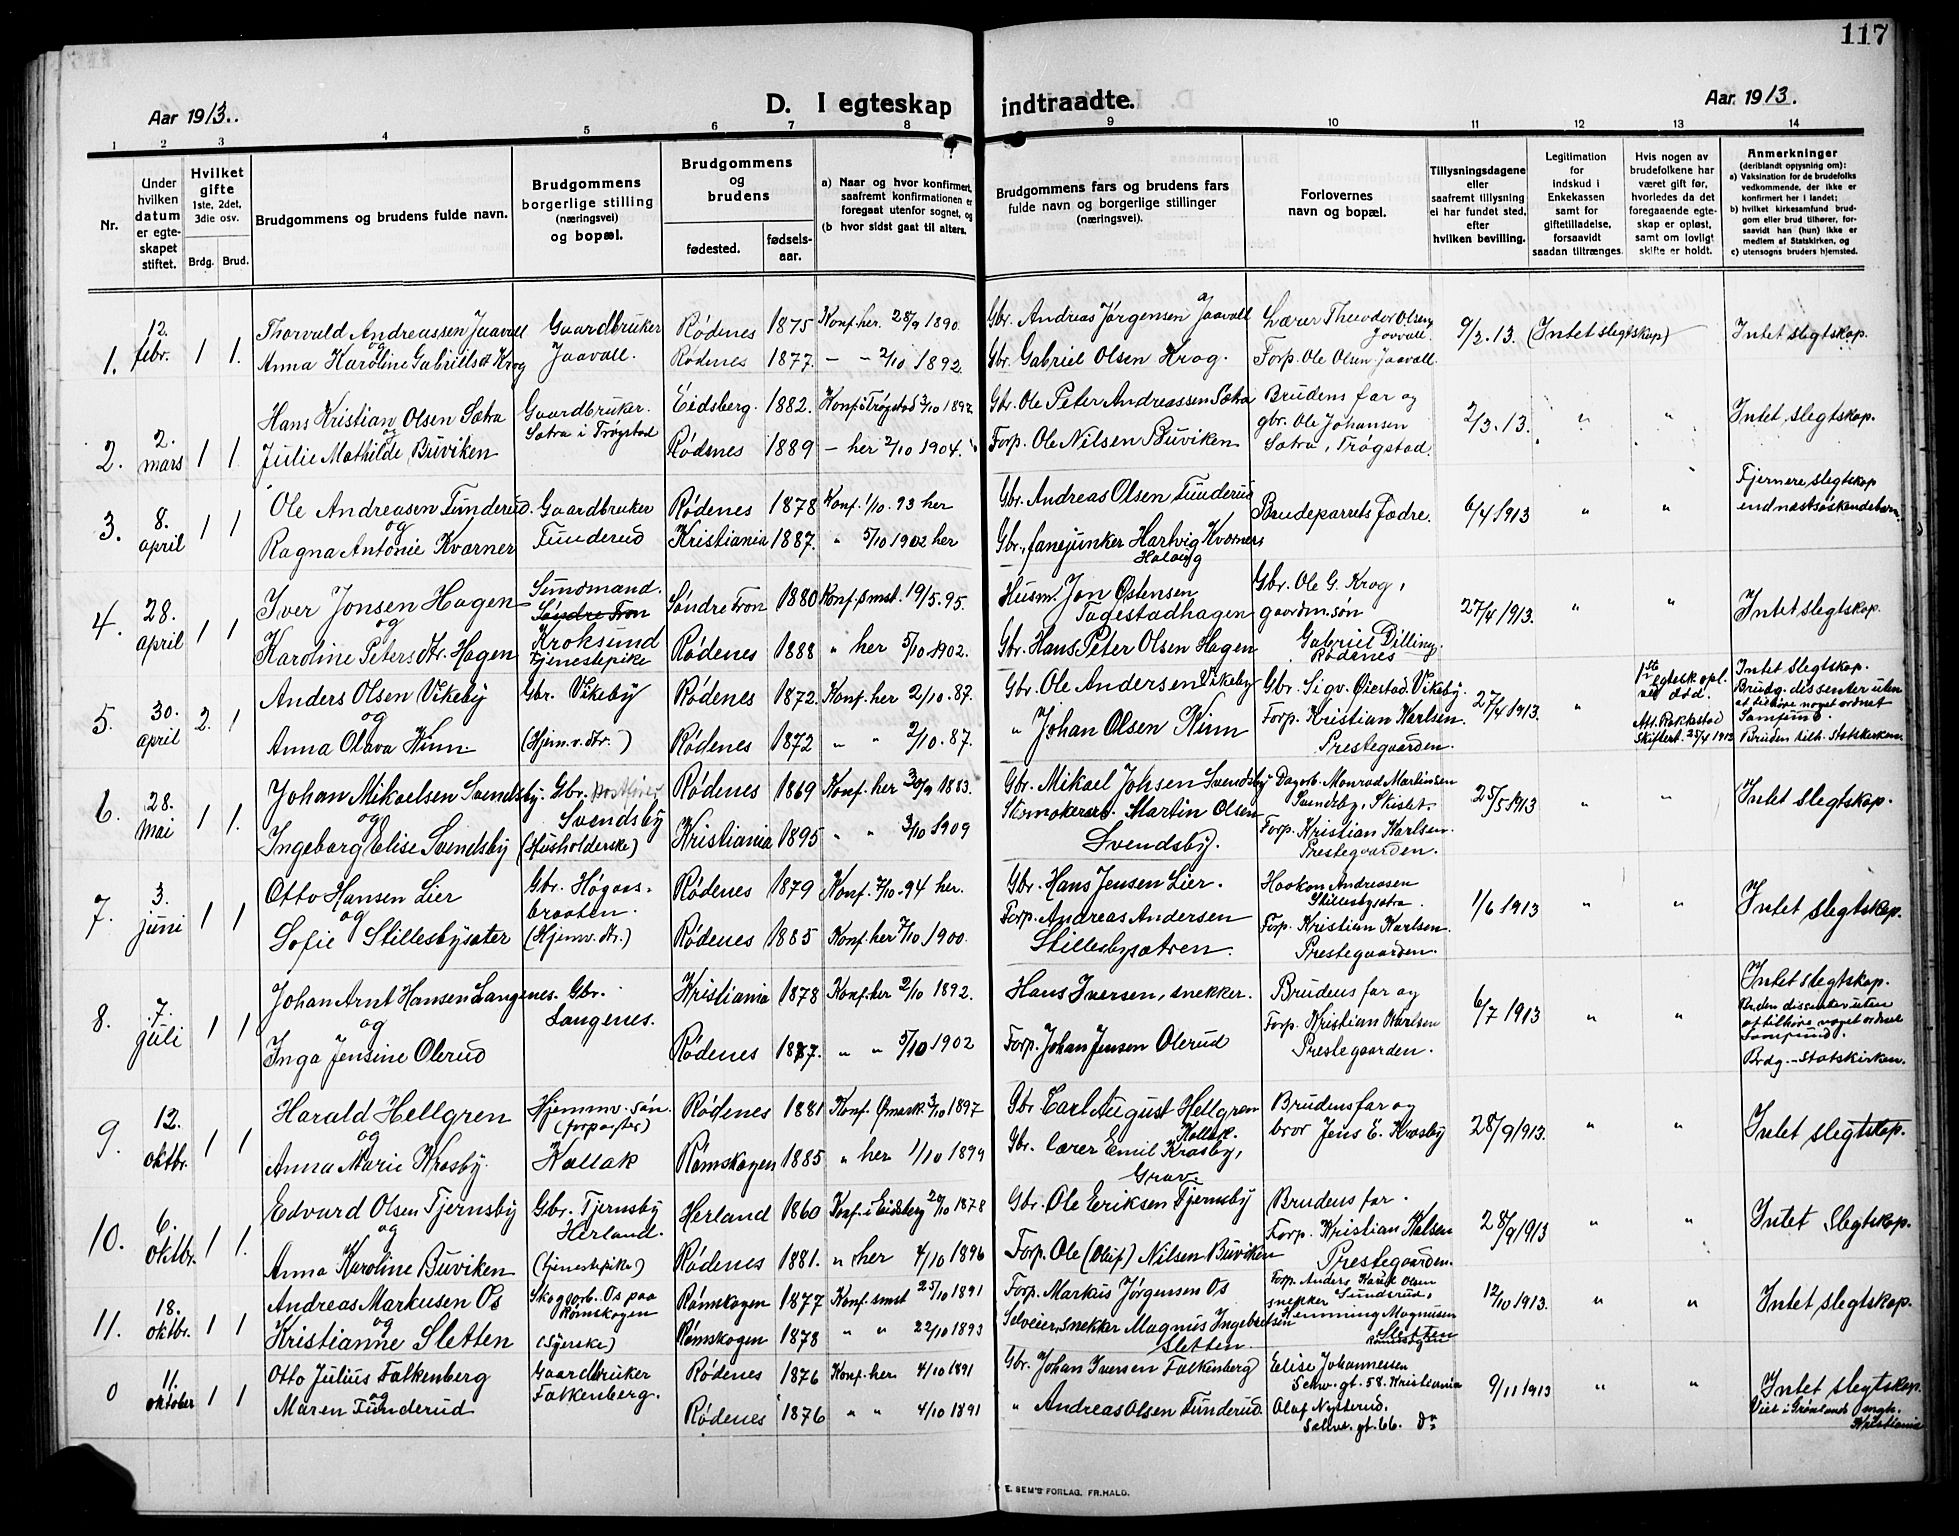 117
Aar 1913.
D. I egteskap indtraadte.
Aar 1913.
1 2 3 4 5 6 7 8 9 10 11 12 13 14
Nr.
Under hvilken datum er egteskapet stiftet.
Hvilket gifte 1ste, 2det, 3die osv.
Brdg. Brud.
Brudgommens og brudens fulde navn.
Brudgommens borgerlige stilling (næringsvei) og bopæl.
Brudgommens og brudens
fødested.
fødselsaar.
a) Naar og hvor konfirmert, saafremt konfirmationen er foregaat utenfor sognet, og
(b hvor sidst gaat til alters.
Brudgommens fars og brudens fars fulde navn og borgerlige stillinger (næringsvei).
Forlovernes navn og bopæl.
Tillysningsdagene eller saafremt tillysning ei har fundet sted, efter hvilken bevilling.
Legitimation for indskud i Enkekassen samt for giftetilladelse, forsaavidt saadan tiltrænges.
Hvis nogen av brudefolkene har været gift før, hvorledes da det foregaaende egteskap er opløst, samt om lovligt skifte er holdt.
Anmerkninger
(deriblandt opjysning om):
a) Vaksination for de brudefolks vedkommende, der ikke er konfirmert her i landet;
b) hvilket kirkesamfund brudgom eller brud tilhører, forsaavidt han (hun) ikke er medlem af Statskirken, og
c) utensogns bruders hjemsted.
1. 12. febr. 1 1.
Thorvald Andreassen Jaavall
og
Anna Karoline Gabrielsdt Krog
Gaardbruker
Jaavall.
Rødenes 1875 Konf. her. 28/9 1890.
Rødenes 1877. – – 2/10 1892.
Gbr. Andreas Jørgensen Jaavall
Gbr. Gabriel Olsen Krog.
Lærer Theodor Olsen
Jaavall.
Forp. Ole Olsen Jaavall.
9/2. 13. (Intet slegtskap)
Intet slegtskap.
2. 2. mars 1 1.
Hans Kristian Olsen Sætra
og
Julie Mathilde Buviken
Gaardbruker.
Sætra i Trøgstad
Eidsberg. 1882. Konf. i Trøgstad 3/10 1897
Rødenes 1889 – her 2/10 1904.
Gbr. Ole Peter Andreassen Sætra
Forp. Ole Nilsen Buviken
Brudens far og
gbr. Ole Johansen
Sætra, Trøgstad.
2/3. 13. " "
Intet slegtskap.
3. 8. april 1 1
Ole Andreasen Tunderud.
og
Ragna Antonie Kværner
Gaardbruker
Tunderud
Rødenes 1878 Konf. 1/10. 93 her
Kristiania 1887. " 5/10 1902 her
Gbr. Andreas Olsen Tunderud
Gbr., fanejunker Hartvig Kværner
Brudeparrets fædre.
6/4 1913 " "
Fjernere slegtskap
end næstsøskendebarn.
4. 28. april 1 1
Iver Jonsen Hagen
og
Karoline Petersdtr. Hagen
Sundmand.
Søndre Fron
Kroksund
Tjenestepike
Søndre Fron 1880 Konf. smst. 19/5. 95.
Rødenes 1888 " her 5/10 1902.
Husm. Jon Østensen
Tagestadhagen
Gbr. Hans Peter Olsen Hagen
Gbr. Ole G. Krog,
gaardm.søn
Gabriel Dilling,
Rødenes
27/4 1913. " "
Intet slegtskap.
5. 30. april 2. 1
Anders Olsen Vikeby
og
Anna Olava Kinn
Gbr. Vikeby
(Hjem.v. dtr.)
Rødenes 1872. Konf. her 2/10. 87.
Rødenes 1872 " " 2/10. 87.
Gbr. Ole Andersen Vikeby
" Johan Olsen Kinn
Gbr. Sigv. Øiestad. Vikeby.
Forp. Kristian Karlsen.
Prestegaarden.
27/4 1913. "
1ste egtesk. opl.
ved død.
Att. Rakkestad
Skifter. 25/4 1913
Intet slegtskap.
Brudg. dissenter uten
at tilhøre noget ordnet
Samfund.
Bruden tilh. Statskirken
6. 28. Mai 1 1.
Johan Mikaelsen Svendsby.
og
Ingeborg Elise Svendsby
Gbr.
Svendsby
(Husholderske)
Rødenes 1869 Konf. her 30/9 1883.
Kristiania 1895 " " 3/10 1909
Gbr. Mikael Johsen Svendsby
Martin Olsen
Svendsby.
Dagarb. Monrad Martinsen
Svendsby, Skislet.
Forp. Kristian Karlsen.
Prestegaarden.
25/5 1913 " "
Intet slegtskap.
7. 3. juni 1 1
Otto Hansen Lier
og
Sofie Stillesbysæter
Gbr. Høgaas-
braaten.
(Hjemv. dtr.)
Rødenes 1879 Konf. 7/10. 94 her.
Rødenes 1885 Konf. her 7/10 1900.
Gbr. Hans Jensen Lier.
Forp. Andreas Andersen
Stillesbysætren.
Haakon Andreasen
Stillesbysætra.
Forp. Kristian Karlsen.
Prestegaarden.
1/6 1913 " "
Intet slegtskap.
8. 7. juli 1 1
Johan Arnt Hansen Langenes.
og
Inga Jensine Olerud
Gbr.
Langenes.
Kristiania 1878 Konf. her 2/10 1892.
Rødenes 1887. " " 5/10 1902
Hans Iversen, snekker.
Forp. Johan Jensen Olerud
Brudens far og
Forp. Kristian Karlsen
Prestegaarden.
6/7 1913 " "
Intet slegtskap.
Bruden dissenter uten
at tilhøre noget ordnet
Samfund.
Brdg. – Statskirken.
9. 12. oktbr. 1 1
Harald Hellgren
og
Anna Marie Krosby.
Hjemmv. søn.
(forpagter)
Kollak
Rødenes 1881 Konf. Ømark. 3/10 1897
Rømskogen 1885 " her 1/10 1899
Gbr. Carl August Hellgren
Kollak.
Gbr. lærer Emil Krosby,
Grav.
Brudens far og
bror Jens E. Krosby
28/9 1913. " "
Intet slegtskap.
10. 6. oktbr. 1 1.
Edvard Olsen Tjernsby
og
Anna Karoline Buviken
Gbr. Tjernsby
Herland.
(tjenestepike)
Herland 1860 Konf. i Eidsberg 20/10 1878
Rødenes 1881. " her 4/10 1896
Gbr. Ole Eriksen Tjernsby
Forp. Ole (Oluf) Nilsen Buviken
Brudens far.
Forp. Kristian Kalsen
Prestegaarden.
28/9 1913 " "
Intet slegtskap.
11. 18. oktbr. 1 1
Andreas Markusen Os
og
Kristianne Sletten
Skogsarb. Os paa
Rømskogen
(Syerske)
Rømskogen 1877 Konf. smst 25/10 1891
Rømskogen 1878 " " 22/10 1893
Forp. Markus Jørgensen Os
Selveier, snekker Magnus Ingebretsen
Sletten.
Forp. Anders Karel Olsen
snekker Sunderud,
Hemming Magnusen
Sletten
12/10 1913. " "
Intet slegtskap.
0 11. oktober 1 1
Otto Julius Falkenberg
og
Maren Tunderud
Gaardbruker
Falkenberg.
Rødenes 1876 Konf. her 4/10 1891
Rødenes 1876 " " 4/10 1891
Gbr. Johan Iversen Falkenberg
" Andreas Olsen Tunderud.
Elise Johannessen
Schw. gt. 58. Kristiania
Olaf Nysterud.
gt. 66. do
9/11 1913 " "
Intet slegtskap.
Viet i Grønlands mgh.
Kristiania
E. SEM'S FORLAG, FR.HALD.